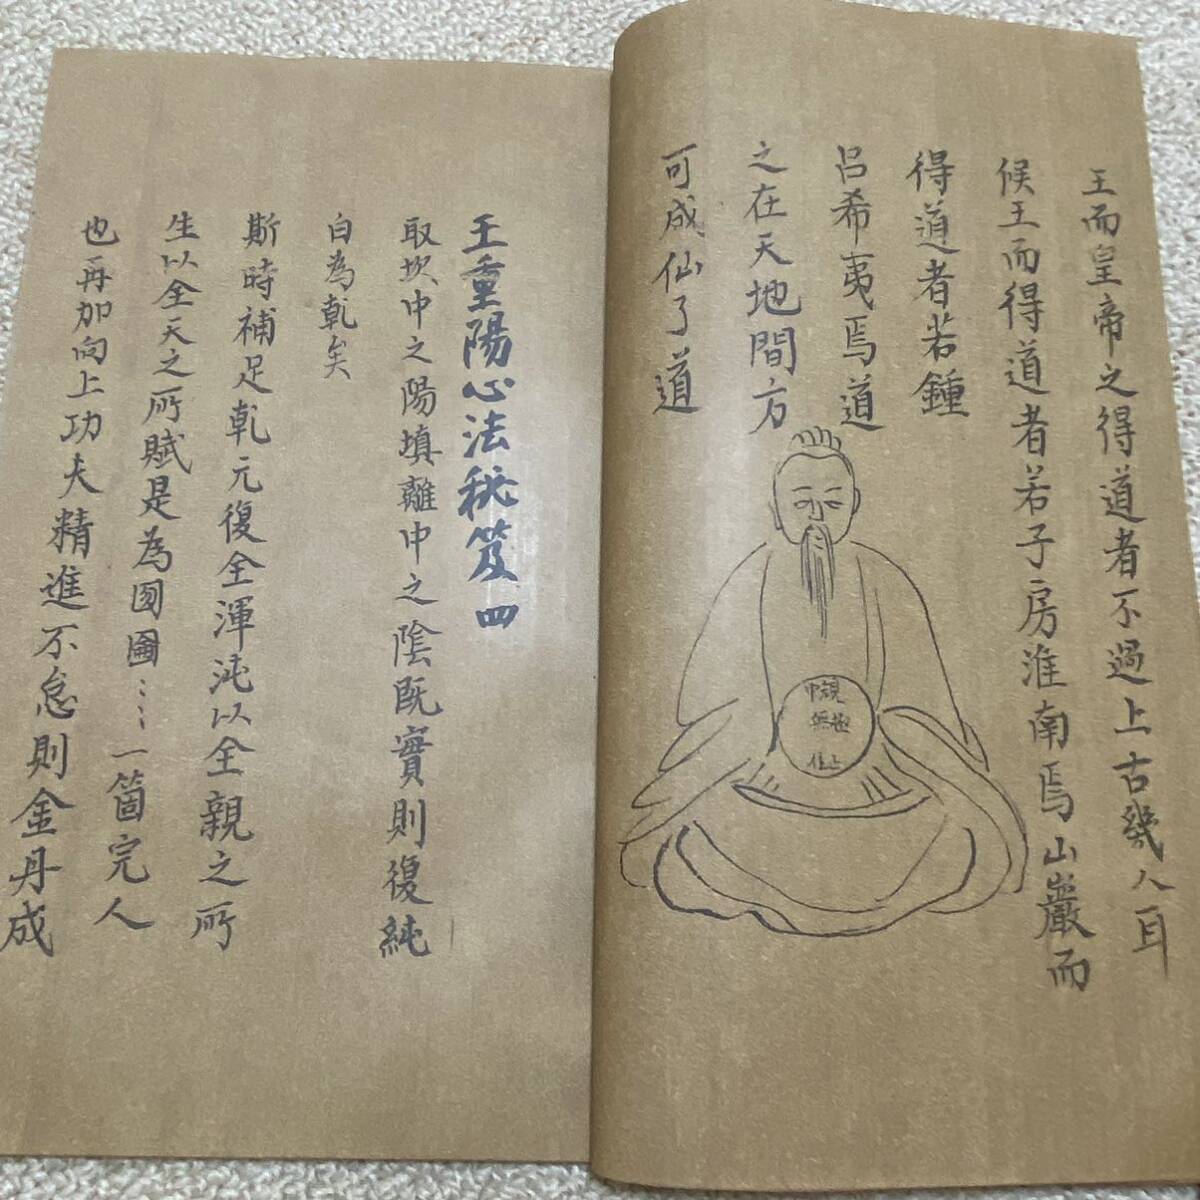 王而皇帝之得道者不過上古幾人耳
候王而得道者若子房淮南焉山巖而
得道者若鍾
呂希夷焉道
之在天地間方
可成仙了道
規中
無極
王重陽心法秘笈四
取坎中之陽填離中之陰既實則復純
白為乾矣
斯時補足乾元復全渾沌以全親之所
生以全天之所賦是為囫圇……一箇完人
也再加向上功夫精進不怠則金丹成